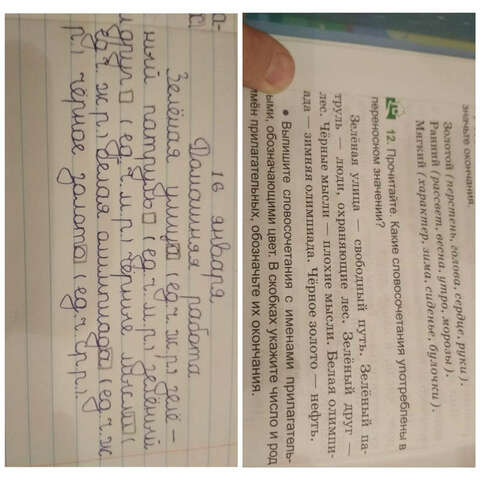 16 января
Домашняя работа
Зелёная улица (ед.ч. ж.р.) зелё-
ный патруль (ед.ч. м.р.) зелёный
друг (ед.ч. м.р.) чёрные мысли (
ед.ч. ж.р.) белая олимпиада (ед.ч. ж
р.) чёрное золото (ед.ч. ср.р.)
значьте окончания.
Золотой (перстень, голова, сердце, руки).
Ранний (рассвет, весна, утро, морозы).
Мягкий (характер, зима, сиденье, булочки).
12. Прочитайте. Какие словосочетания употреблены в
переносном значении?
Зелёная улица — свободный путь. Зелёный па-
труль — люди, охраняющие лес. Зелёный друг —
лес. Чёрные мысли — плохие мысли. Белая олимпи-
ада — зимняя олимпиада. Чёрное золото — нефть.
• Выпишите словосочетания с именами прилагатель-
ными, обозначающими цвет. В скобках укажите число и род
имён прилагательных, обозначьте их окончания.